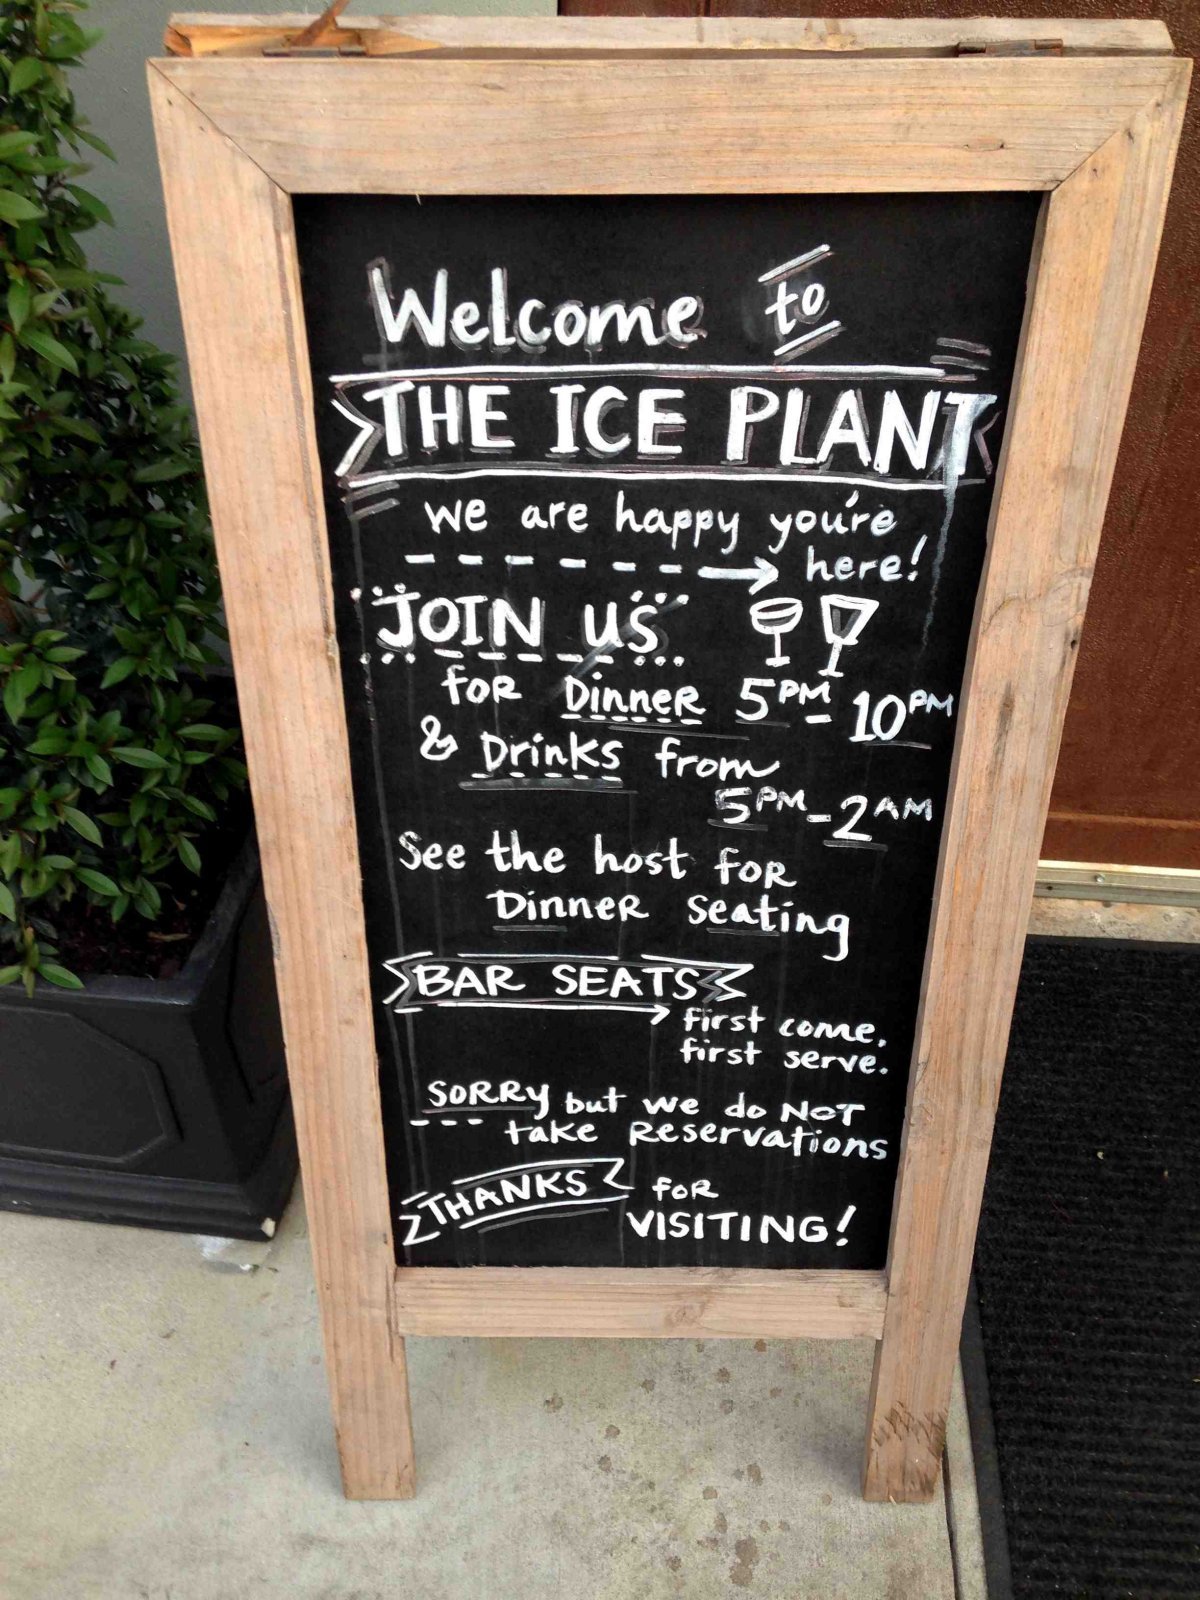 Welcome to
THE ICE PLANT
we are happy you're
here!
JOIN US
for Dinner 5PM - 10PM
& Drinks from
5PM - 2AM
See the host for
Dinner seating
BAR SEATS
first come,
first serve.
SORRY but we do NOT
take Reservations
THANKS for
VISITING!